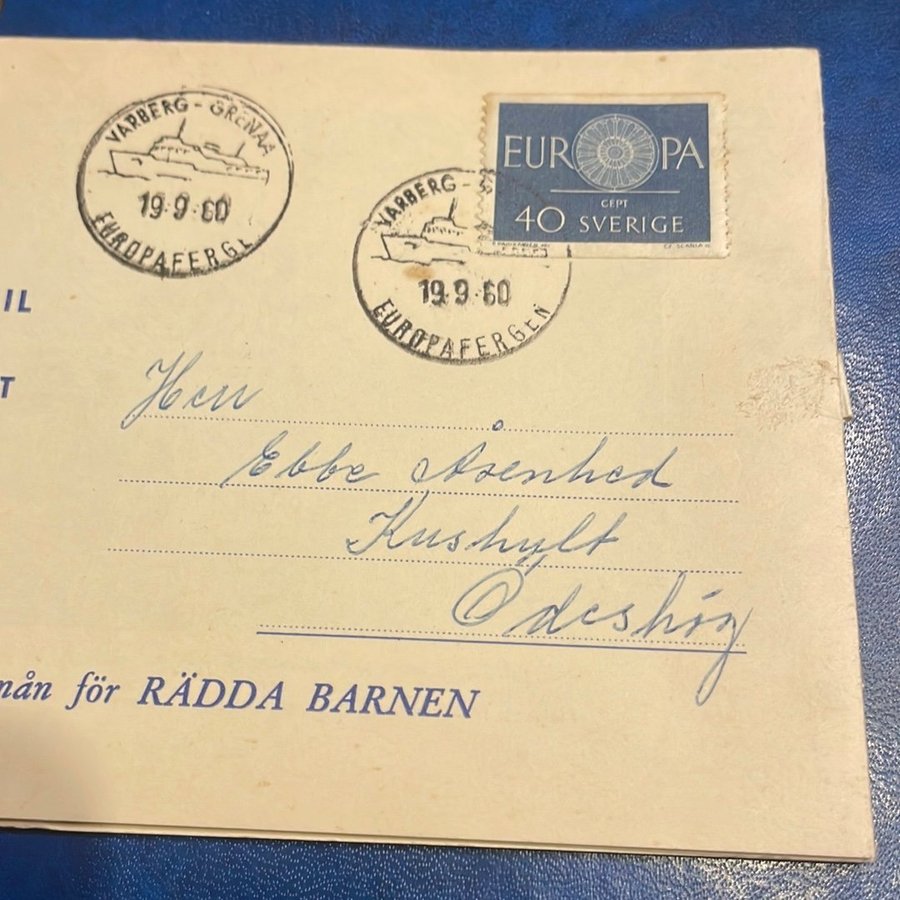 VARBERG - GRENAA
19·9·60
EUROPAFERGE
EUROPA
CEPT
40 SVERIGE
VARBERG -
19·9·60
EUROPAFERGEN
IL
T
Herr
Ebbe Åsenhed
Kushylt
Ödeshög
mån för RÄDDA BARNEN